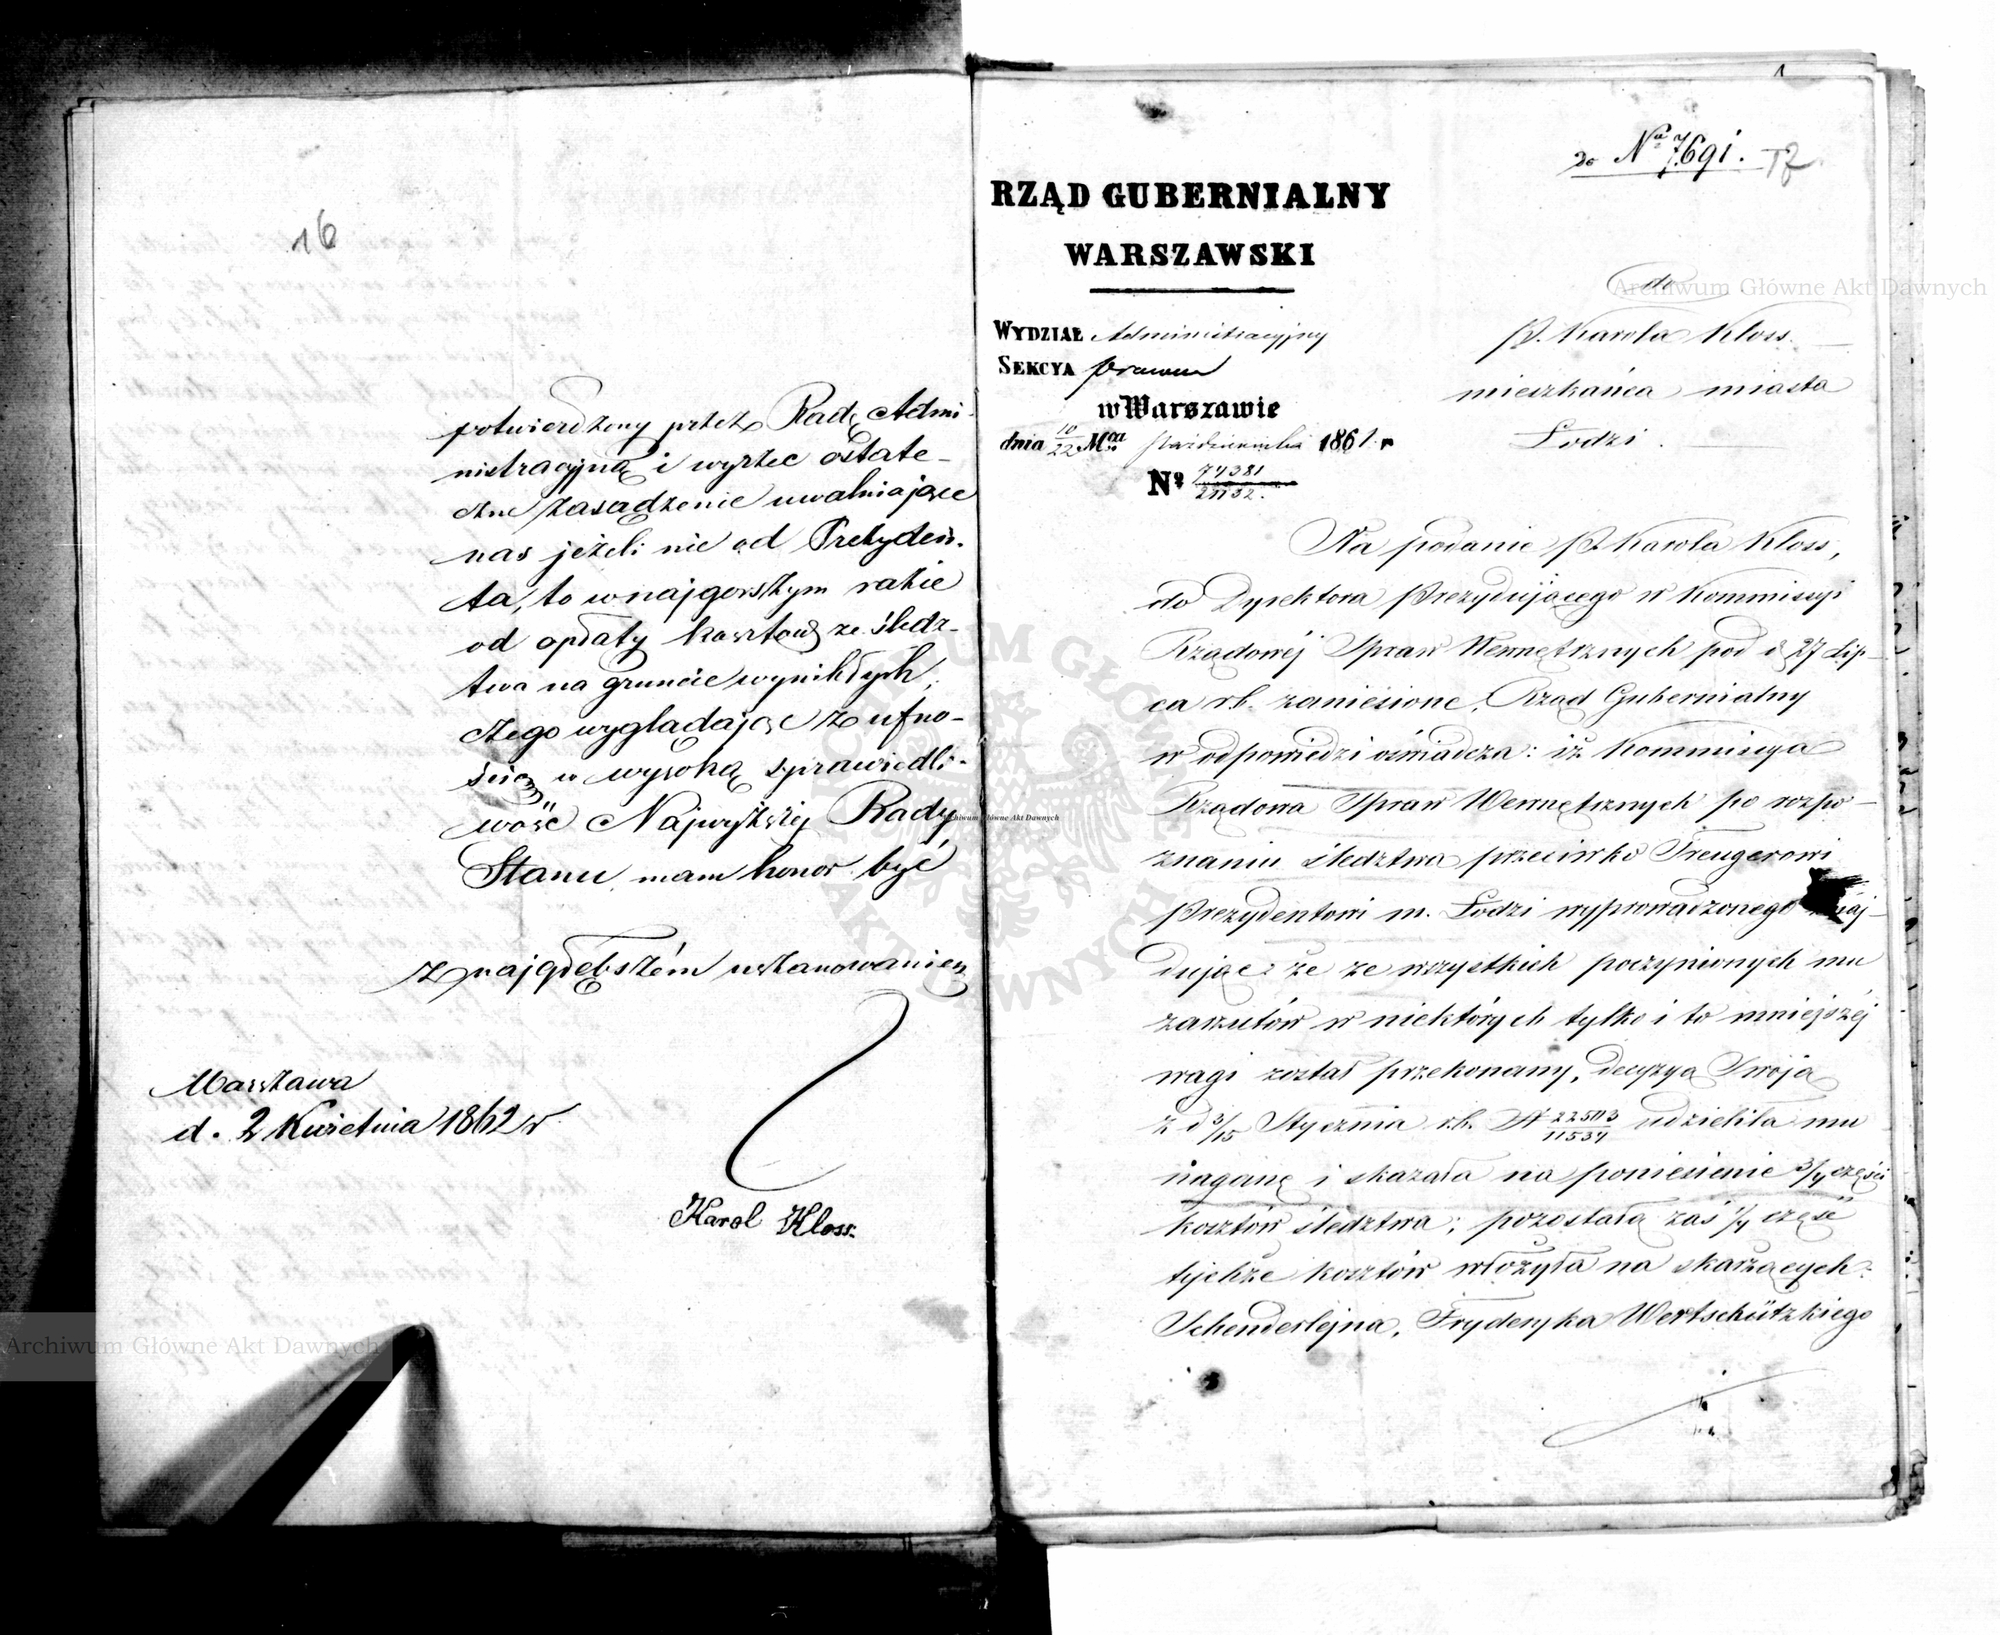 16
potwierdzony przez Radę Admi-
nistracyjną i wyrzec ostate-
czne zasądzenie uwalniające
nas jeżeli nie od Prezyden-
ta, to w najgorszym razie
od opłaty kosztów ze śledz-
twa na gruncie wynikłych,
czego wyglądając z ufno-
ścią w wysoką sprawiedli-
wość Najwyższej Rady
Stanu mam honor być
z najgłębszém uszanowaniem
Warszawa
d. 2 Kwietnia 1862 r.
Karol Kloss.
1
do Nru 7691.
RZĄD GUBERNIALNY
WARSZAWSKI
WYDZIAŁ Administracyjny
SEKCYA Prawna
w Warszawie
dnia 10/22 Mca Października 1861. r
No 74381/27732.
do
P. Karola Kloss
mieszkańca miasta
Łodzi.
Na podanie P. Karola Kloss,
do Dyrektora Prezydującego w Kommissyi
Rządowéj Spraw Wewnętrznych pod d. 27 Lip-
ca r.b. zaniesione, Rząd Gubernialny
w odpowiedzi oświadcza: iż Kommissya
Rządowa Spraw Wewnętrznych po rozpo-
znaniu śledztwa przeciwko Treugerowi
Prezydentowi m. Łodzi wyprowadzonego znaj-
dując: że ze wszystkich poczynionych mu
zarzutów w niektórych tylko i to mniejszéj
wagi został przekonany, decyzyą Swoją
z d 3/15 Stycznia r.b. N 22503/11534 udzieliła mu
naganę i skazała na poniesienie 3/4 części
kosztów śledztwa; pozostałą zaś 1/4 część
tychże kosztów włożyła na skarżących:
Schenderlejna, Fryderyka Wertschützkiego
Archiwum Główne Akt Dawnych
Archiwum Główne Akt Dawnych
Archiwum Główne Akt Dawnych
ARCHIWUM GŁÓWNE AKT DAWNYCH